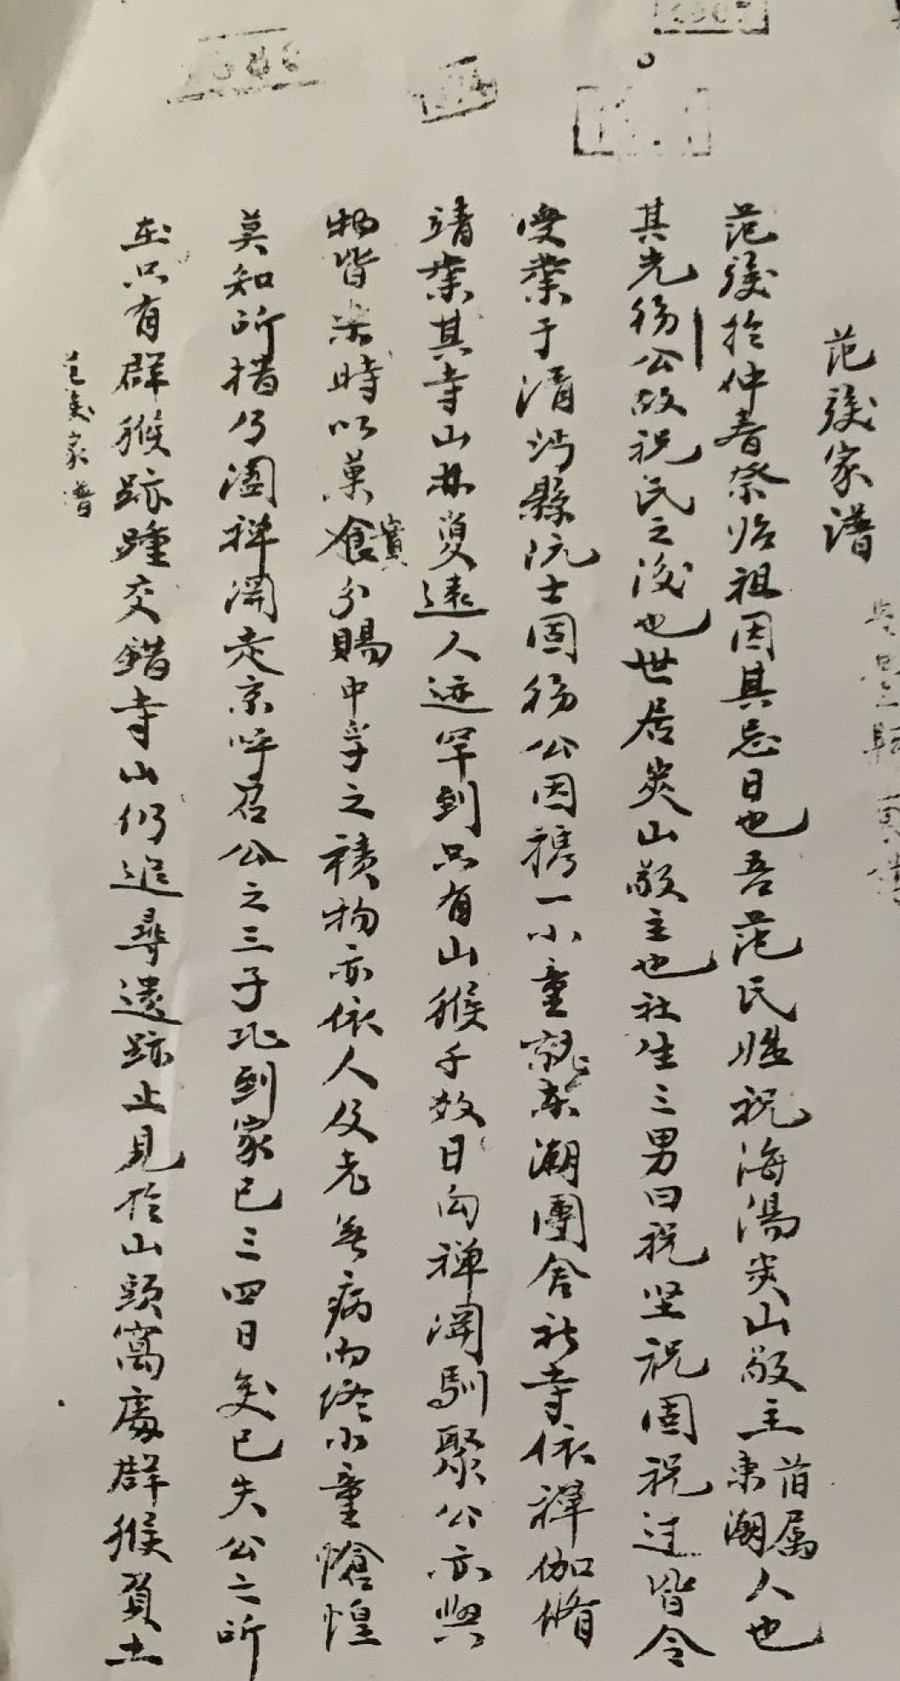 范後家譜
范後於仲春祭始祖因其忌日也吾范氏姓祝海陽炎山敬主昔属東潮人也
其先揚公故祝氏之後也世居炎山敬主也社生三男曰祝坚祝固祝过皆令
受業于清沔縣阮士固揚公因携一小童就東潮團舍社寺依禅伽脩
靖業其寺山林夐遠人迹罕到只有山猴千数日向禅関馴聚公亦與
物皆楽時以菓實飡分賜中孚之積物亦依人及老無病而終小童愴惶
莫知所措乃闔禅関走京呼召公之三子比到家已三四日矣已失公之所
在只有群猴跡踵交錯寺山仍追尋遗跡止見於山頭窩處群猴負土
范後家譜